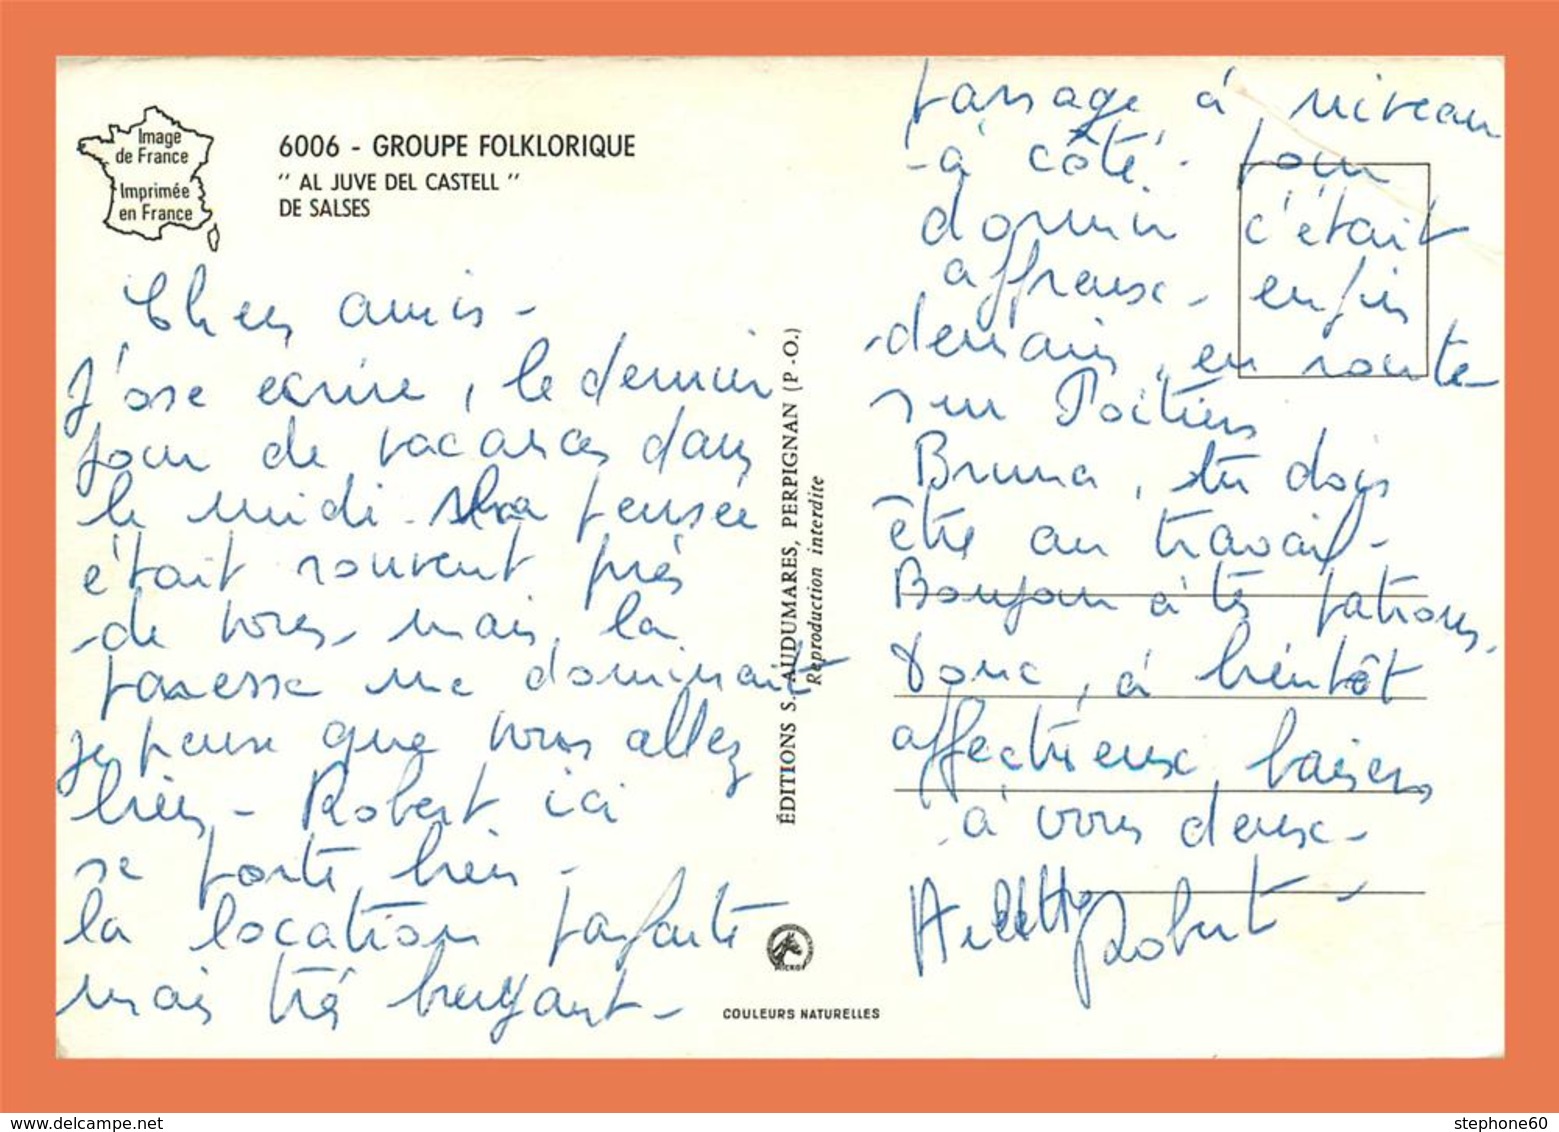 Image
de France
Imprimée
en France
6006 - GROUPE FOLKLORIQUE
" AL JUVE DEL CASTELL "
DE SALSES
Chers amis -
J'ose écrire, le dernier
jour de vacances dans
le midi - Ma pensée
était souvent près
de vous, mais, la
paresse me dominait
je pense que vous allez
bien - Robert ici
se porte bien -
la location parfaite
mais très bruyant -
ÉDITIONS S. AUDUMARES, PERPIGNAN (P.-O.)
Reproduction interdite
MICRO
COULEURS NATURELLES
passage à niveau
à côté - pour
dormir c'était
affreux - enfin
demain, en route
sur Poitiers
Bruna, tu dois
être au travail -
Bonjour à tes patrons,
Donc, à bientôt
affectueux baisers
à vous deux -
Arlette Robert
stephone60